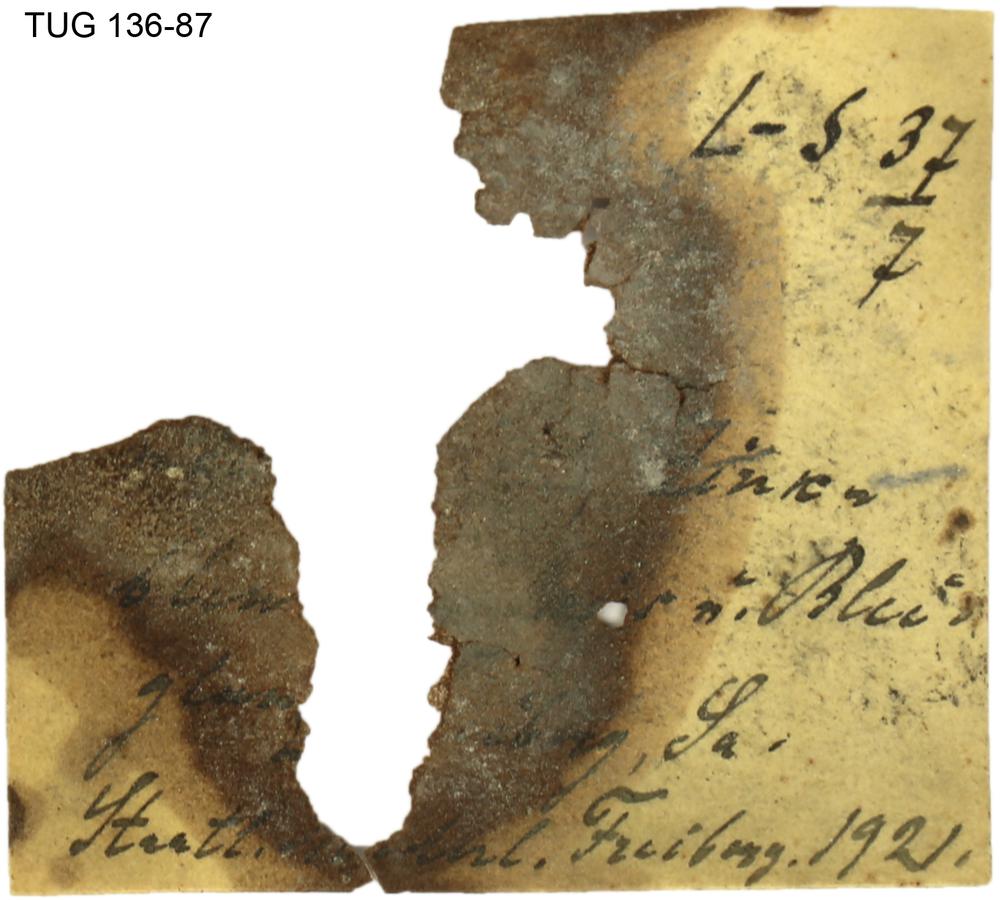 TUG 136-87
L-S 37
7
Zink-
blen u. Blei-
glan berg, Sa.
Staatl. Freiberg. 1921.